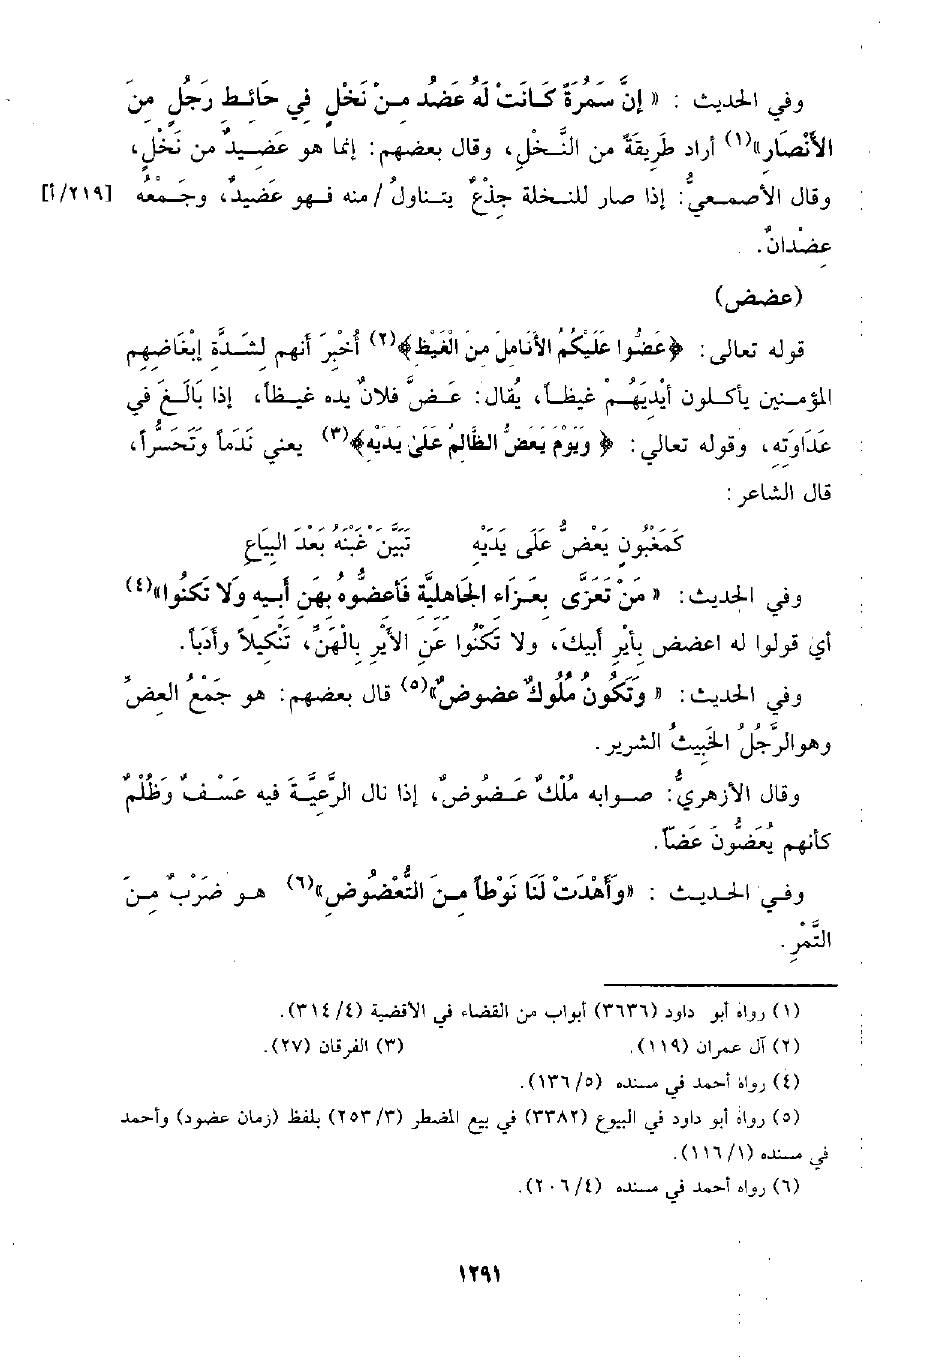 وفي الحديث : « إنَّ سَمُرَةً كَانَتْ لَهُ عَضُد مِنْ نَخْلٍ في حَائِط رَجُلٍ مِنَ
الأَنْصَارِ»(١) أراد طَرِيقَةً من النَّخْلِ، وقال بعضهم: إنما هو عَضِيدٌ من نَخْلٍ،
وقال الأصمعيُّ: إذا صار للنخلة جِذْعٌ يتناولُ / منه فهو عَضِيدٌ، وجَمْعُه [٢١٩/أ]
عِضْدانٌ.
(عضض)
قوله تعالى: ﴿عَضُّوا عَلَيْكُمُ الأَنَامِلَ مِنَ الْغَيْظِ﴾(٢) أُخْبِرَ أنهم لِشدَّةِ إبْغَاضِهِم
المؤمنين يأكلون أيْدِيَهُمْ غيظاً، يُقال: عَضَّ فلانٌ يده غيظاً، إذا بَالَغَ في
عَدَاوَتِهِ، وقوله تعالي: ﴿ وَيَوْمَ يَعَضُّ الظَّالِمُ عَلَى يَدَيْهِ﴾(٣) يعني نَدَماً وتَحَسُّراً،
قال الشاعر :
كَمَغْبُونٍ يَعَضُّ عَلَى يَدَيْهِ تَبَيَّنَ غَبْنُه بَعْدَ البِيَاعِ
وفي الحديث: « مَنْ تَعَزَّى بِعَزَاءِ الجَاهِلِيَّةِ فَأعِضُّوهُ بِهَنِ أَبِيهِ وَلَا تَكْنُوا»(٤)
أي قولوا له اعضض بِأَيْرِ أَبِيكَ، ولا تَكْنُوا عَنِ الأَيْرِ بِالْهَنِّ، تَنْكِيلاً وأدَباً.
وفي الحديث: « وَتَكُونُ مُلُوكٌ عضُوضٌ»(٥) قال بعضهم: هو جَمْعُ العِضِّ
وهوالرَّجُلُ الخَبِيثُ الشرير.
وقال الأزهريُّ: صوابه مُلْكٌ عَضُوضٌ، إذا نال الرَّعِيَّةَ فيه عَسْفٌ وَظُلْمٌ
كأنهم يُعَضُّونَ عَضّاً.
وفي الحديث : «وأَهْدَتْ لَنَا نَوْطاً مِنَ التَّعْضُوضِ»(٦) هو ضَرْبٌ مِنَ
التَّمْرِ.
(١) رواه أبو داود (٣٦٣٦) أبواب من القضاء في الأقضية (٣١٤/٤).
(٢) آل عمران (١١٩). (٣) الفرقان (٢٧).
(٤) رواه أحمد في مسنده (١٣٦/٥).
(٥) رواه أبو داود في البيوع (٣٣٨٢) في بيع المضطر (٢٥٣/٣) بلفظ (زمان عضود) وأحمد
في مسنده (١١٦/١).
(٦) رواه أحمد في مسنده (٢٠٦/٤).
١٢٩١